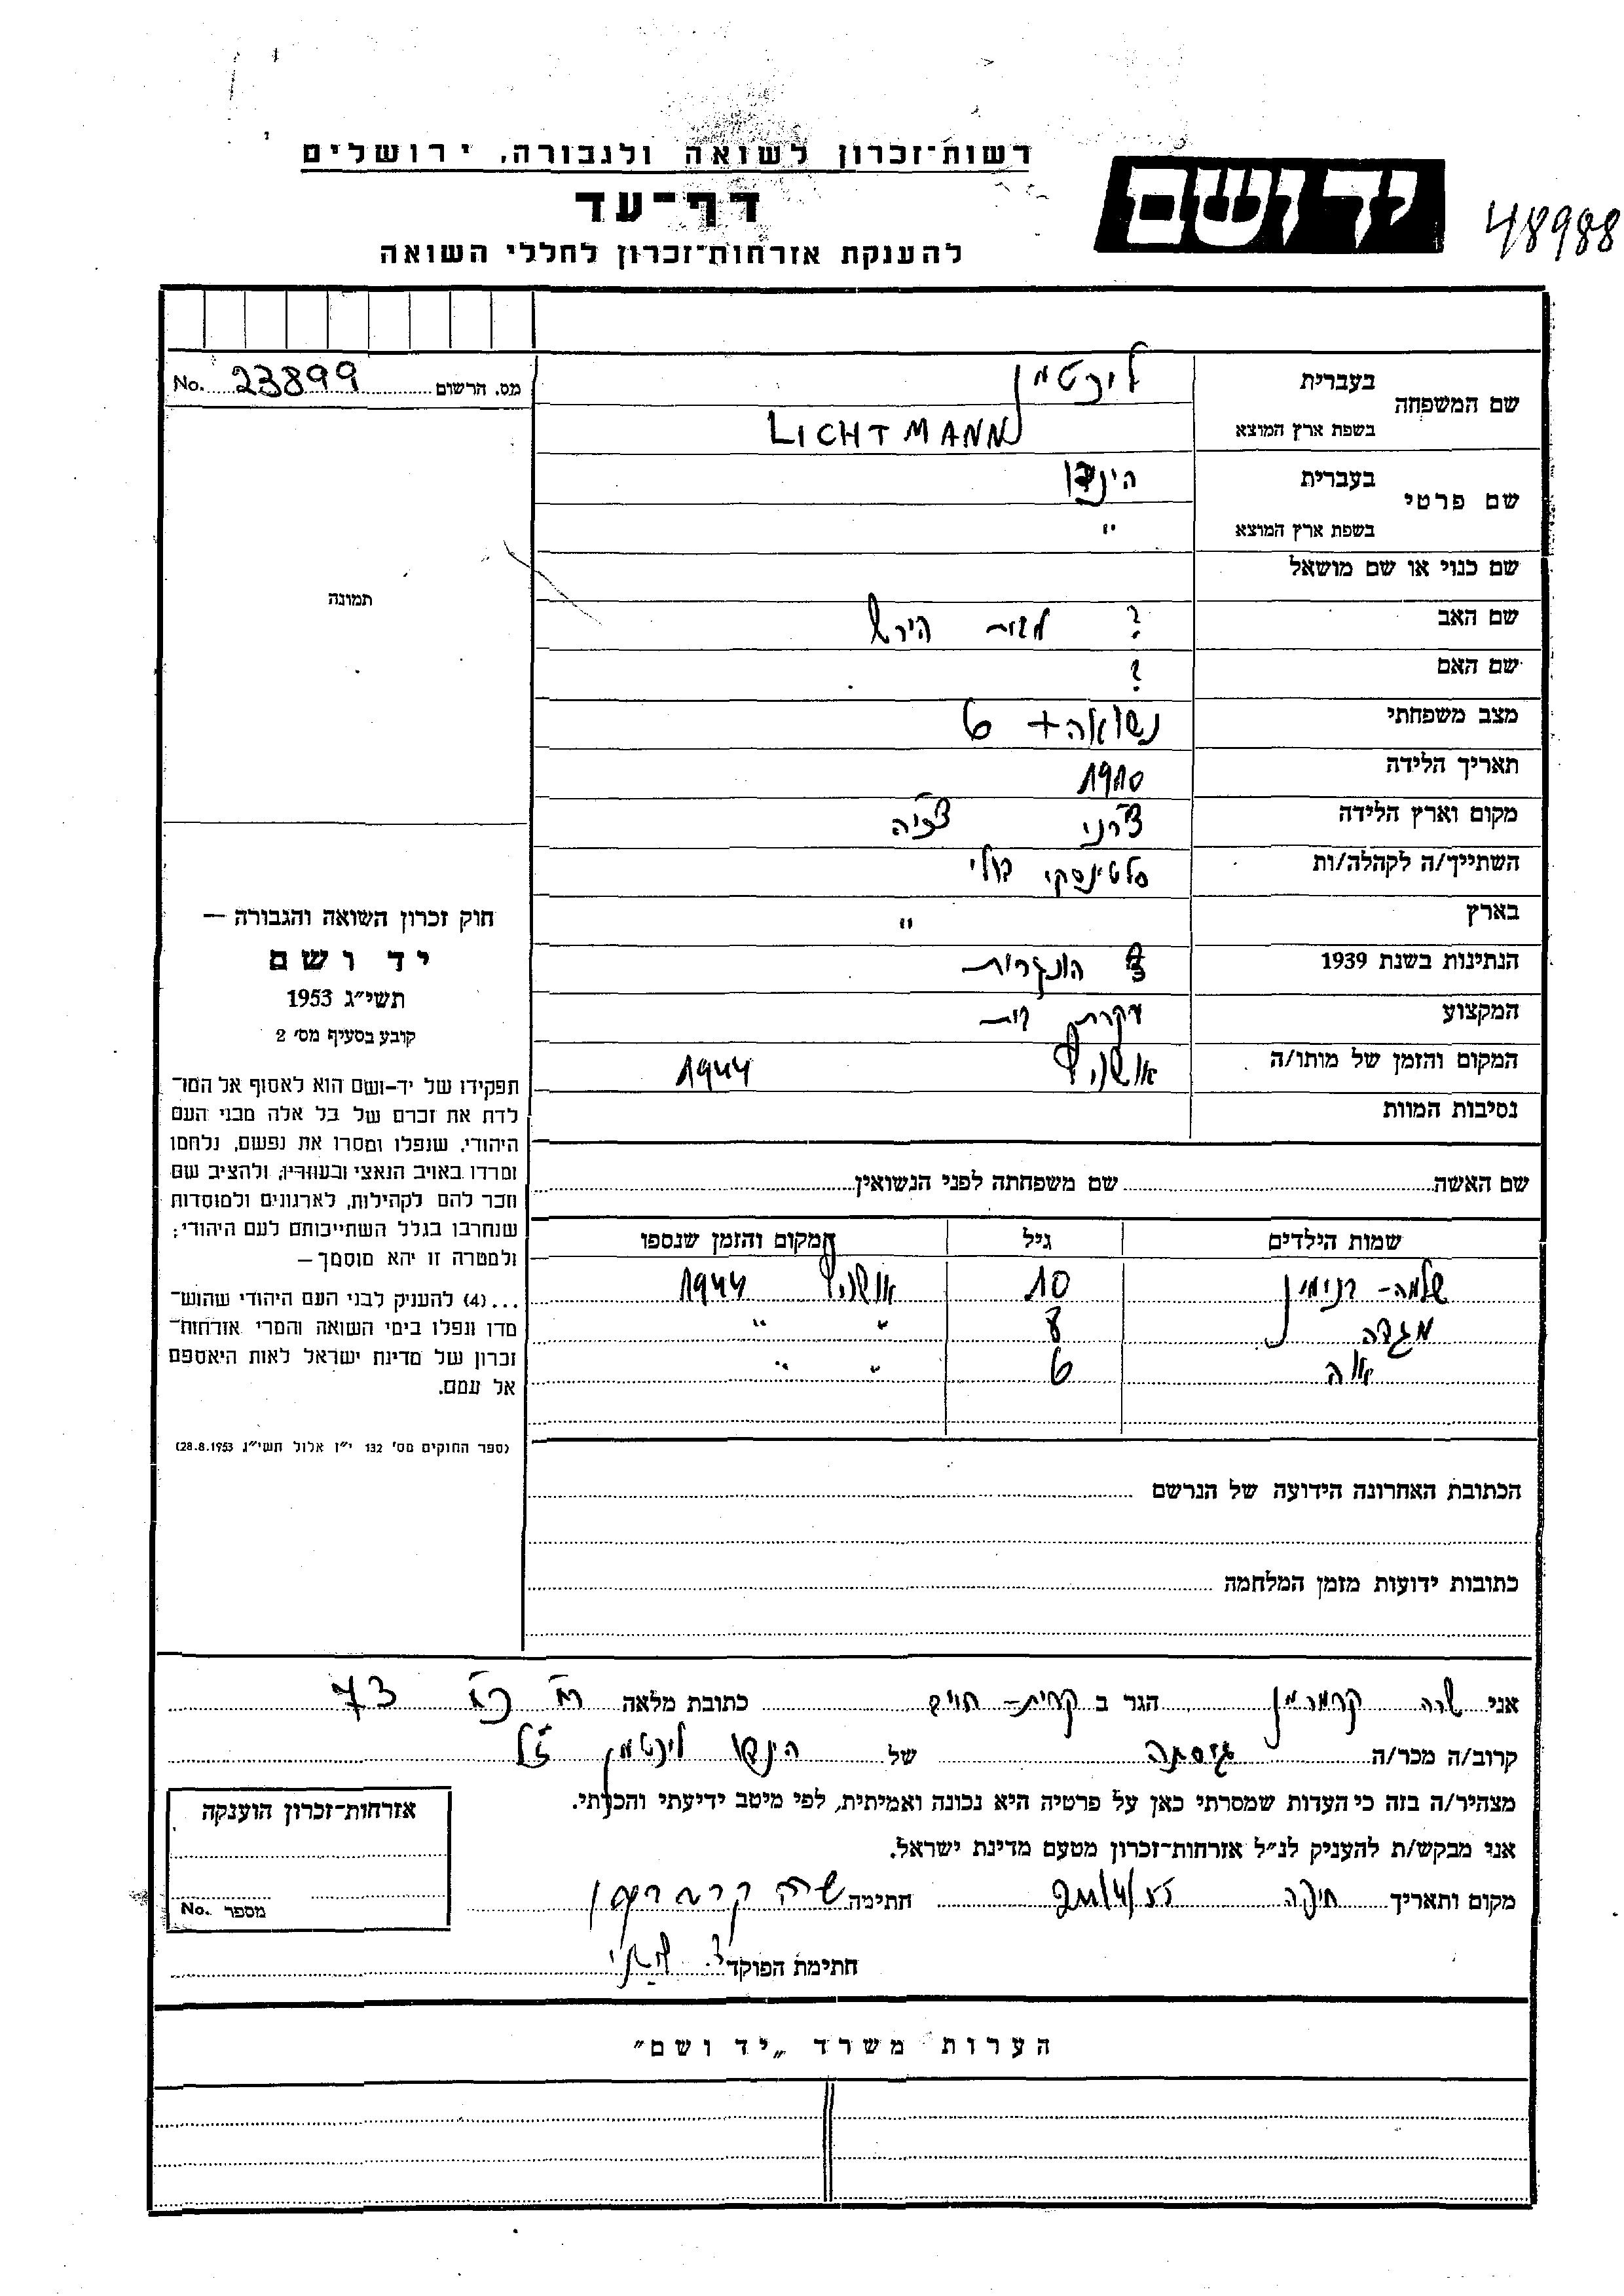 רשות־זכרון לשואה ולגבורה, ירושלים
דף־עד
להענקת אזרחות־זכרון לחללי השואה
יד ושם
48988
מס. הרשום 23899 No.
שם המשפחה
בעברית ליכטמן
בשפת ארץ המוצא LICHTMANN
שם פרטי
בעברית
בשפת ארץ המוצא "
שם כנוי או שם מושאל
שם האב ? הירש
שם האם ?
מצב משפחתי נשואה + 6
תאריך הלידה 1910
מקום וארץ הלידה
השתייך/ה לקהלה/ות
בארץ "
הנתינות בשנת 1939 הונגרית
המקצוע עקרת בית
המקום והזמן של מותו/ה אושויץ 1944
נסיבות המוות
שם האשה שם משפחתה לפני הנשואין
שמות הילדים גיל המקום והזמן שנספו
שלמה - בנימין 10 אושויץ 1944
מגדה 8 " "
אוה 6 " "
הכתובת האחרונה הידועה של הנרשם
כתובות ידועות מזמן המלחמה
תמונה
חוק זכרון השואה והגבורה —
יד ושם
תשי״ג 1953
קובע בסעיף מס׳ 2
תפקידו של יד-ושם הוא לאסוף אל המו־
לדת את זכרם של כל אלה מבני העם
היהודי, שנפלו ומסרו את נפשם, נלחמו
ומרדו באויב הנאצי ובעוזריו, ולהציב שם
וזכר להם לקהילות, לארגונים ולמוסדות
שנחרבו בגלל השתייכותם לעם היהודי;
ולמטרה זו יהא מוסמך —
...(4) להעניק לבני העם היהודי שהוש־
מדו ונפלו בימי השואה והמרי אזרחות־
זכרון של מדינת ישראל לאות היאספם
אל עמם.
(ספר החוקים מס׳ 132 י״ז אלול תשי״ג 28.8.1953)
אני שרה הגר ב קרית - כתובת מלאה 73
קרוב/ה מכר/ה גיסתה של ליכטמן ז"ל
מצהיר/ה בזה כי העדות שמסרתי כאן על פרטיה היא נכונה ואמיתית, לפי מיטב ידיעתי והכרתי.
אני מבקש/ת להעניק לנ״ל אזרחות־זכרון מטעם מדינת ישראל.
מקום ותאריך חיפה חתימה שרה
חתימת הפוקד
אזרחות־זכרון הוענקה
מספר No.
הערות משרד „יד ושם״